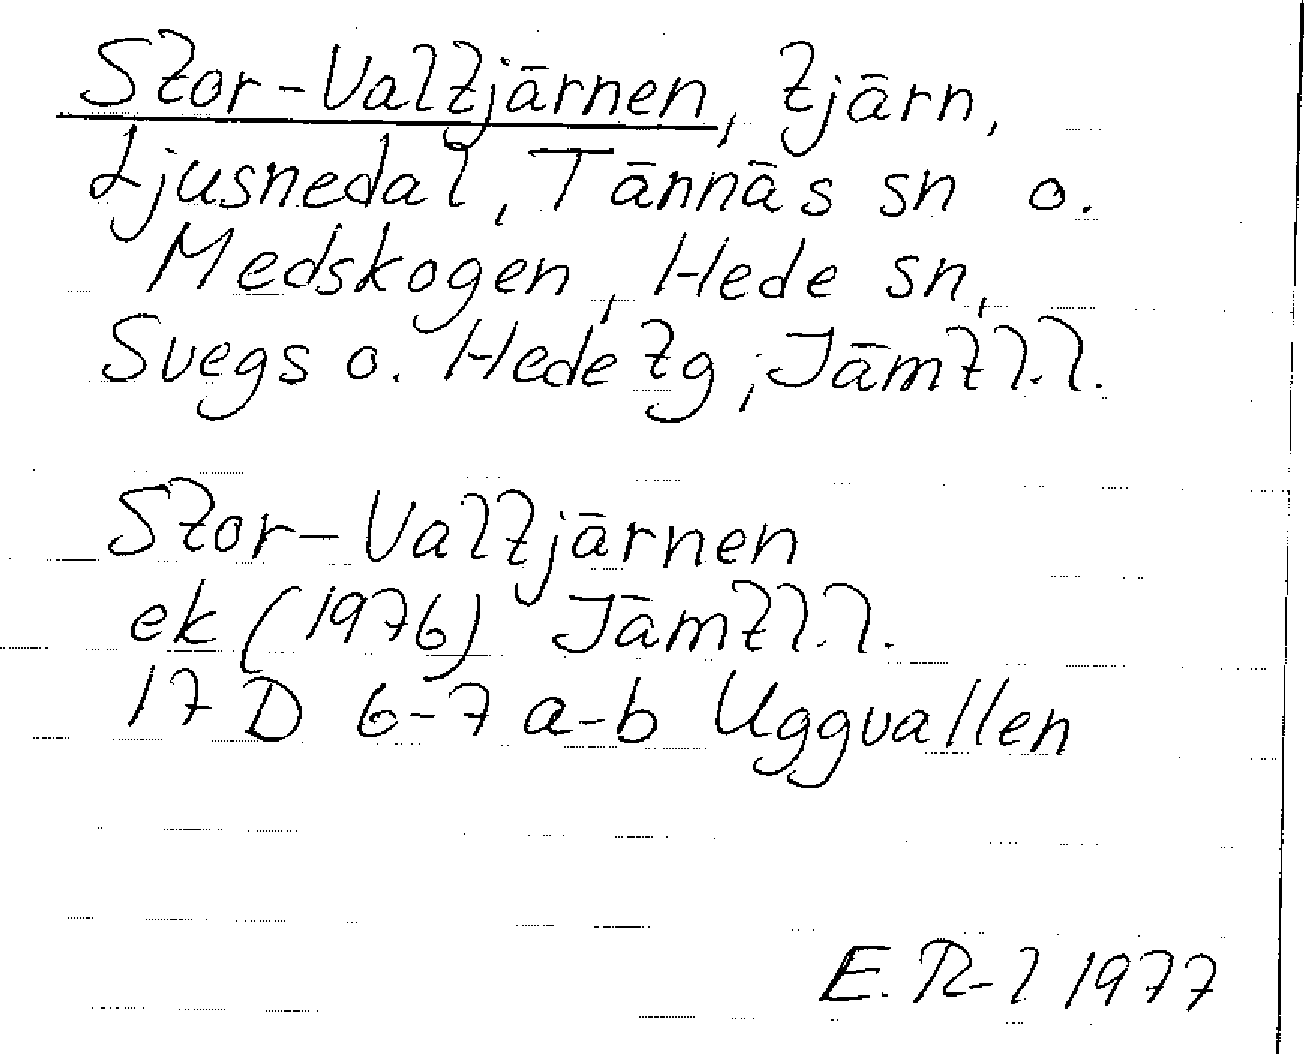 Stor-Valtjärnen, tjärn,
Ljusnedal, Tännäs sn o.
Medskogen, Hede sn,
Svegs o. Hede tg, Jämtl.l.
Stor-Valtjärnen
ek (1976) Jämtl.l.
17 D 6-7 a-b Uggvallen
E. R-l 1977